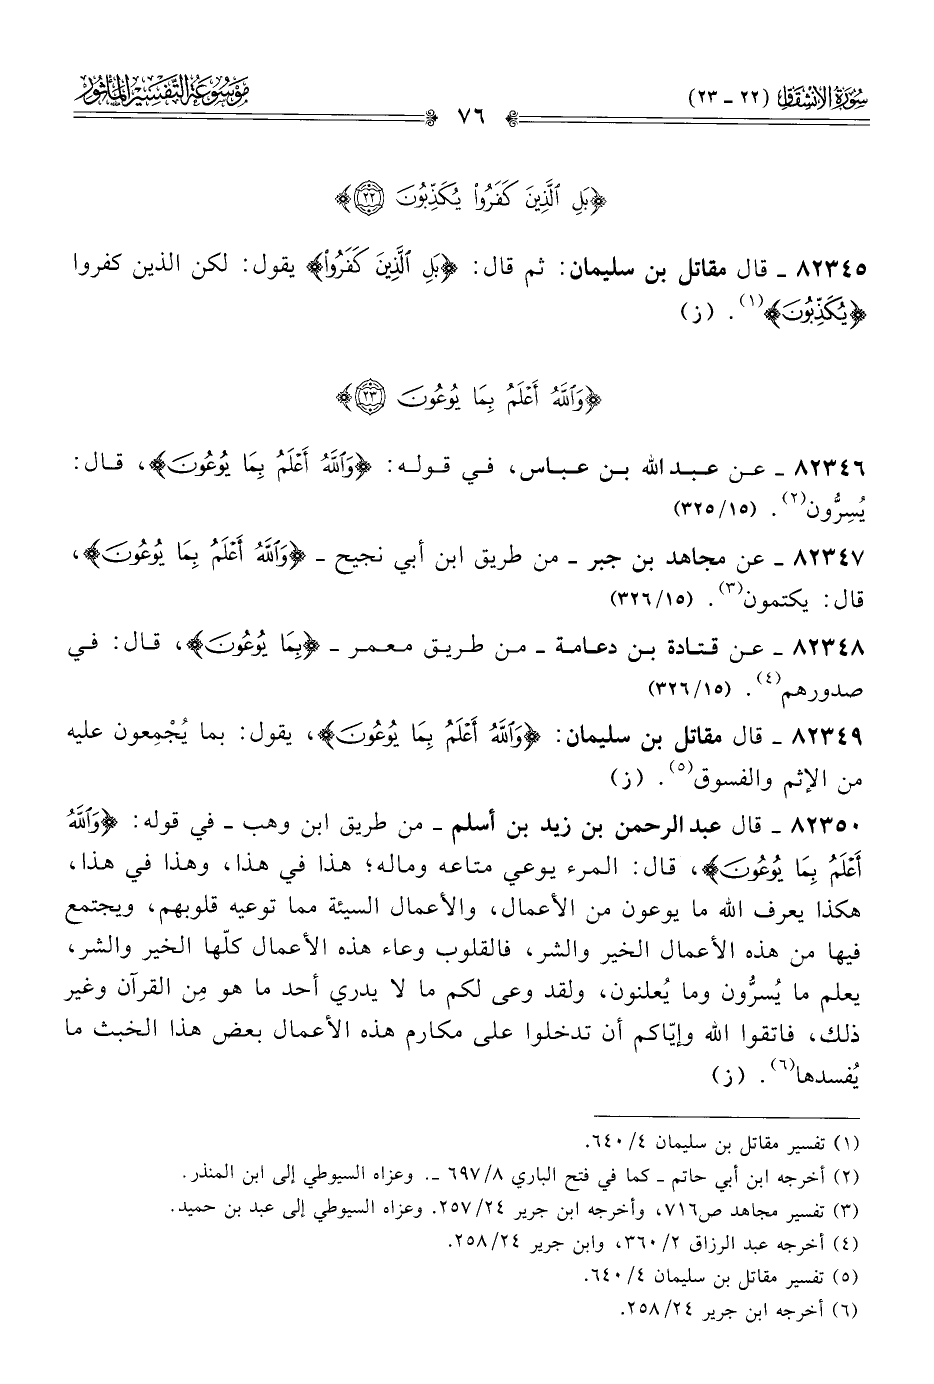 سُورَةُ الانْشِقَاقِ (٢٢ - ٢٣)
مَوْسُوعَة التَّفْسِيرِ المَأْثُور
٧٦
﴿بَلِ ٱلَّذِينَ كَفَرُوا۟ يُكَذِّبُونَ ٢٢﴾
٨٢٣٤٥ ـ قال مقاتل بن سليمان: ثم قال: ﴿بَلِ ٱلَّذِينَ كَفَرُوا۟﴾ يقول: لكن الذين كفروا
﴿يُكَذِّبُونَ﴾(١). (ز)
﴿وَٱللَّهُ أَعْلَمُ بِمَا يُوعُونَ ٢٣﴾
٨٢٣٤٦ ـ عن عبد الله بن عباس، في قوله: ﴿وَٱللَّهُ أَعْلَمُ بِمَا يُوعُونَ﴾، قال:
يُسِرُّون(٢). (٣٢٥/١٥)
٨٢٣٤٧ ـ عن مجاهد بن جبر ـ من طريق ابن أبي نجيح ـ ﴿وَٱللَّهُ أَعْلَمُ بِمَا يُوعُونَ﴾،
قال: يكتمون(٣). (٣٢٦/١٥)
٨٢٣٤٨ ـ عن قتادة بن دعامة ـ من طريق معمر ـ ﴿بِمَا يُوعُونَ﴾، قال: في
صدورهم(٤). (٣٢٦/١٥)
٨٢٣٤٩ ـ قال مقاتل بن سليمان: ﴿وَٱللَّهُ أَعْلَمُ بِمَا يُوعُونَ﴾، يقول: بما يُجْمِعون عليه
من الإثم والفسوق(٥). (ز)
٨٢٣٥٠ ـ قال عبد الرحمن بن زيد بن أسلم ـ من طريق ابن وهب ـ في قوله: ﴿وَٱللَّهُ
أَعْلَمُ بِمَا يُوعُونَ﴾، قال: المرء يوعي متاعه وماله؛ هذا في هذا، وهذا في هذا،
هكذا يعرف الله ما يوعون من الأعمال، والأعمال السيئة مما توعيه قلوبهم، ويجتمع
فيها من هذه الأعمال الخير والشر، فالقلوب وعاء هذه الأعمال كلّها الخير والشر،
يعلم ما يُسرُّون وما يُعلنون، ولقد وعى لكم ما لا يدري أحد ما هو مِن القرآن وغير
ذلك، فاتقوا الله وإيّاكم أن تدخلوا على مكارم هذه الأعمال بعض هذا الخبث ما
يُفسدها(٦). (ز)
(١) تفسير مقاتل بن سليمان ٦٤٠/٤.
(٢) أخرجه ابن أبي حاتم ـ كما في فتح الباري ٦٩٧/٨ ـ. وعزاه السيوطي إلى ابن المنذر.
(٣) تفسير مجاهد ص٧١٦، وأخرجه ابن جرير ٢٥٧/٢٤. وعزاه السيوطي إلى عبد بن حميد.
(٤) أخرجه عبد الرزاق ٣٦٠/٢، وابن جرير ٢٥٨/٢٤.
(٥) تفسير مقاتل بن سليمان ٦٤٠/٤.
(٦) أخرجه ابن جرير ٢٥٨/٢٤.